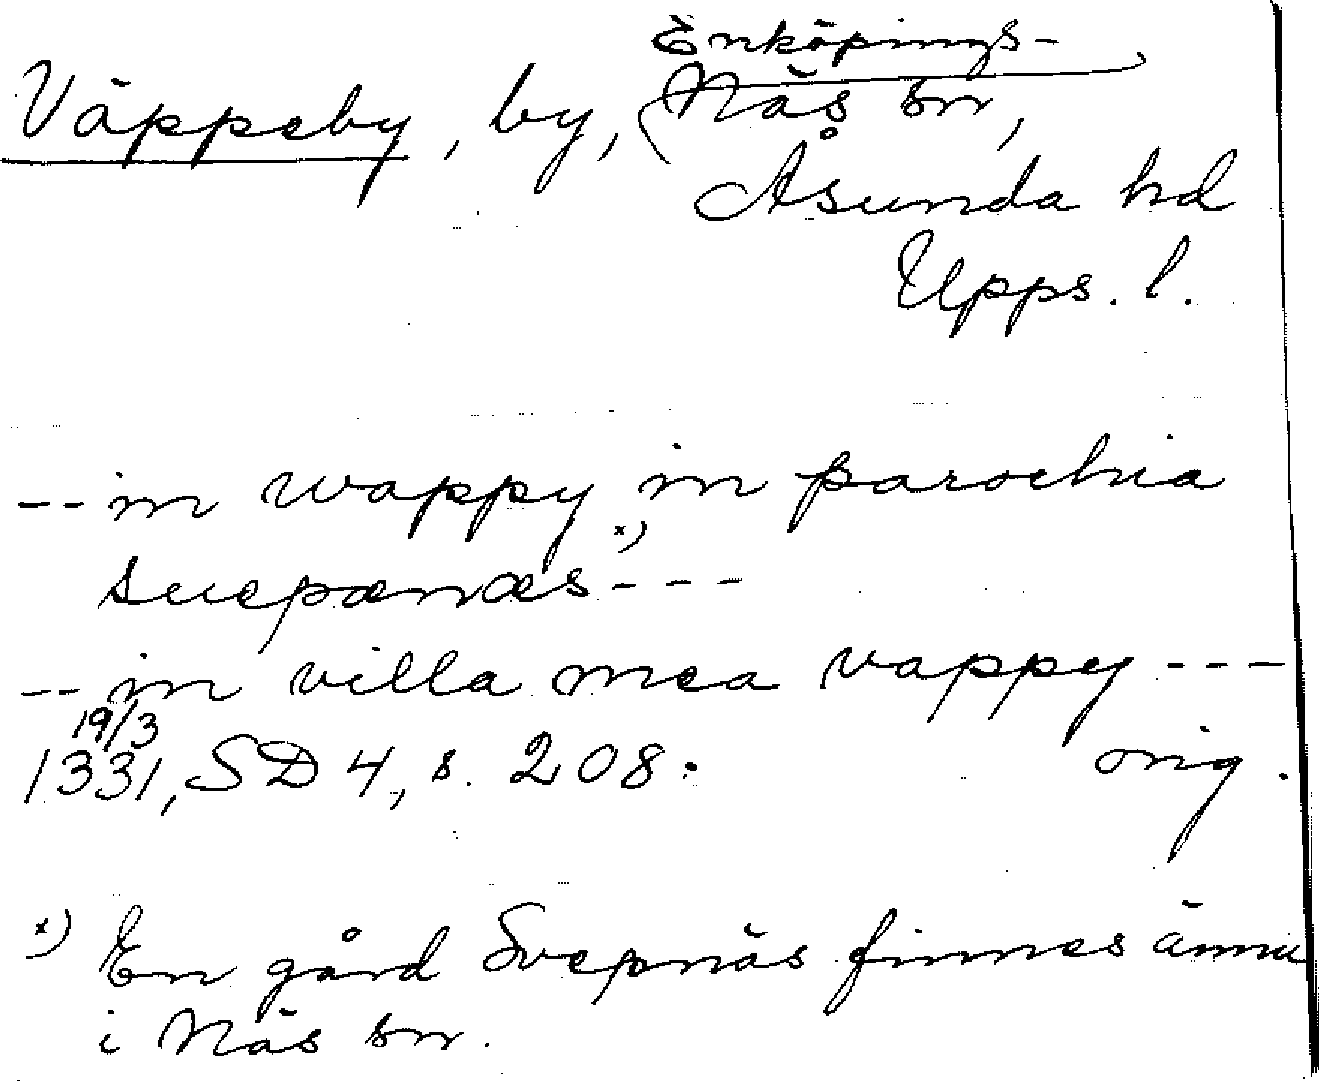 Enköpings-
Väppeby, by, (Näs sn,
Åsunda hd
Upps. l.
-- in wappy in parochia
suepænæs x) ---
-- in villa mea vappy ---
19/3
1331, SD 4, s. 208. orig.
x) En gård Svepnäs finnes ännu
i Näs sn.